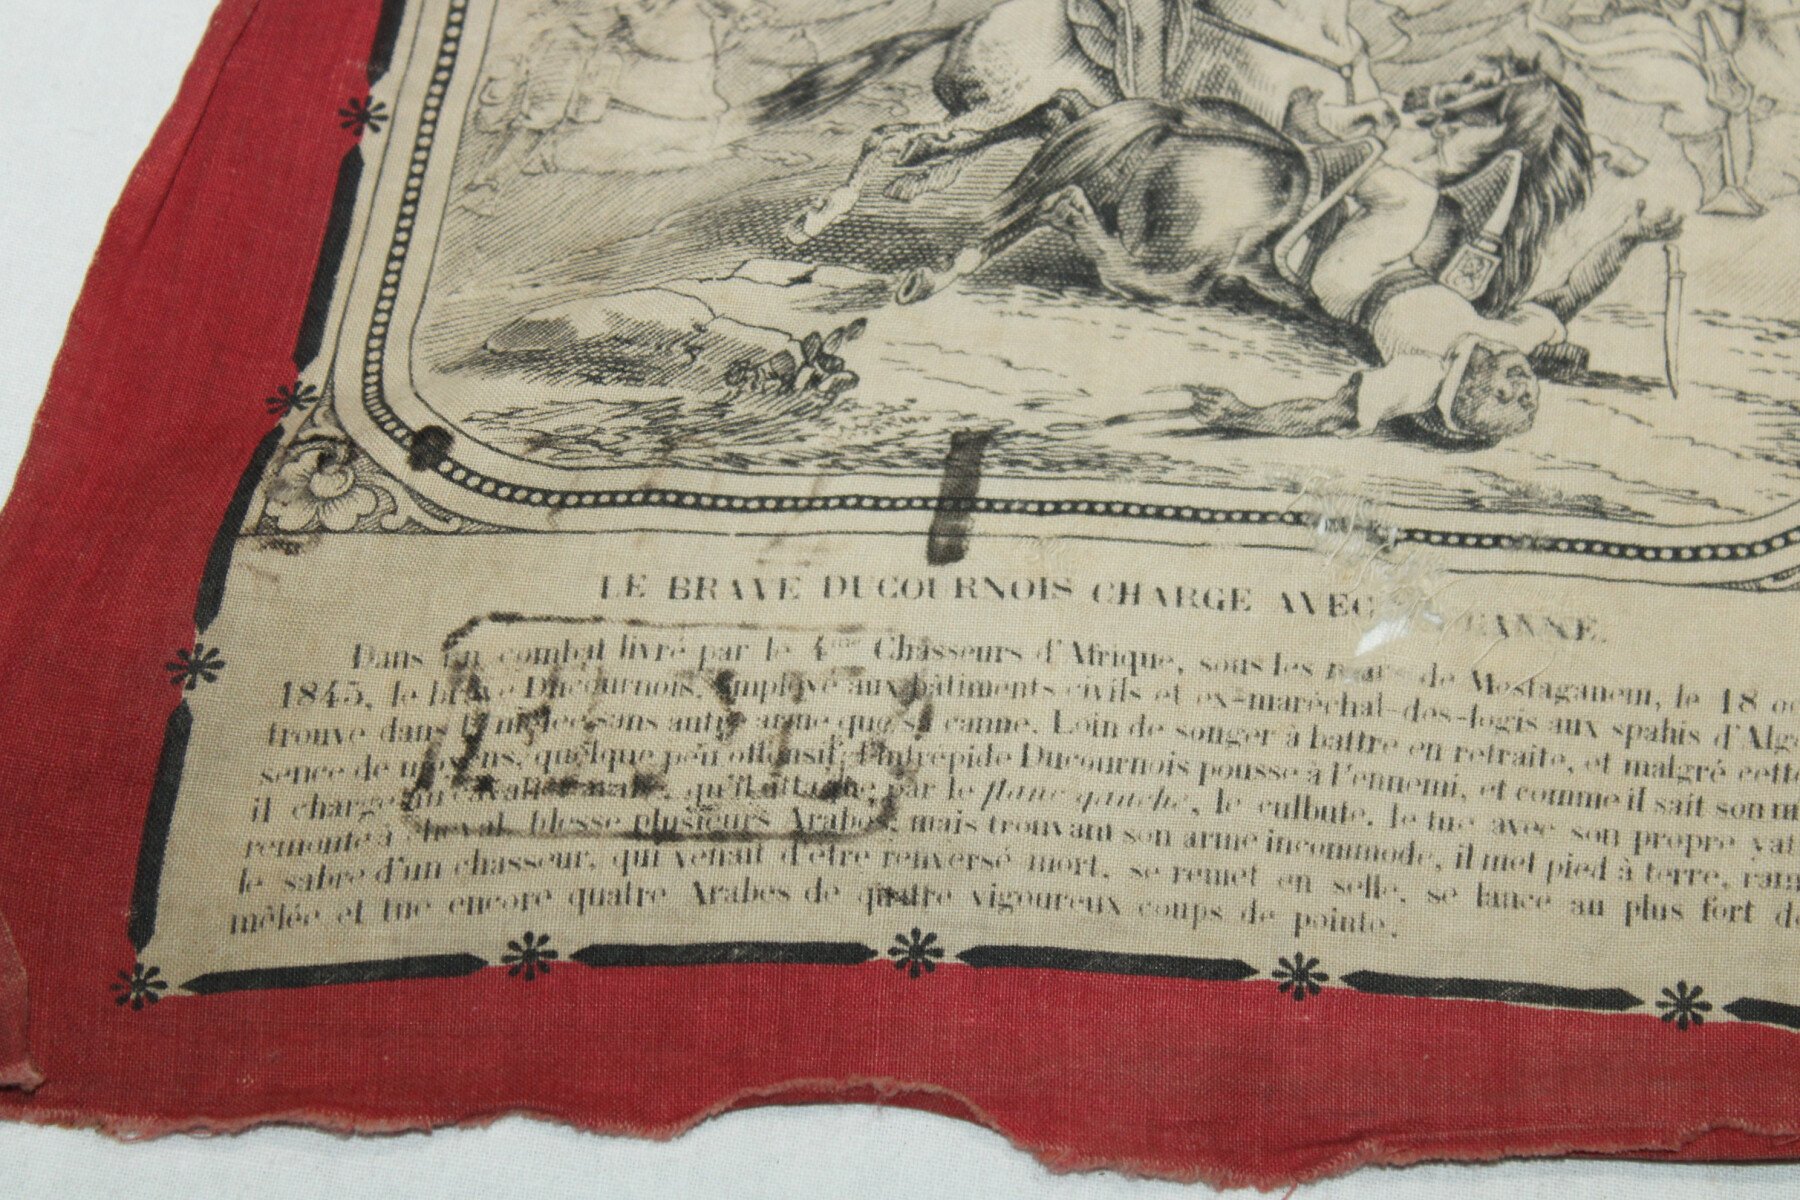 LE BRAVE DUCOURNOIS CHARGE AVEC CANNE.
Dans un combat livré par le 4me Chasseurs d'Afrique, sous les murs de Mostaganem, le 18
1845, le brave Ducournois, employé aux bâtiments civils et ex-maréchal-des-logis aux spahis d'Alg
trouve dans la mêlée sans autre arme que sa canne. Loin de songer à battre en retraite, et malgré cette
sence de moyens, quelque peu offensif, l'intrépide Ducournois pousse à l'ennemi, et comme il sait son m
il charge un cavalier arabe, qu'il attaque par le flanc gauche, le culbute, le tue avec son propre yat
remonte à cheval, blesse plusieurs Arabes, mais trouvant son arme incommode, il met pied à terre, ram
le sabre d'un chasseur, qui venait d'être renversé mort, se remet en selle, se lance au plus fort d
mêlée et tue encore quatre Arabes de quatre vigoureux coups de pointe.